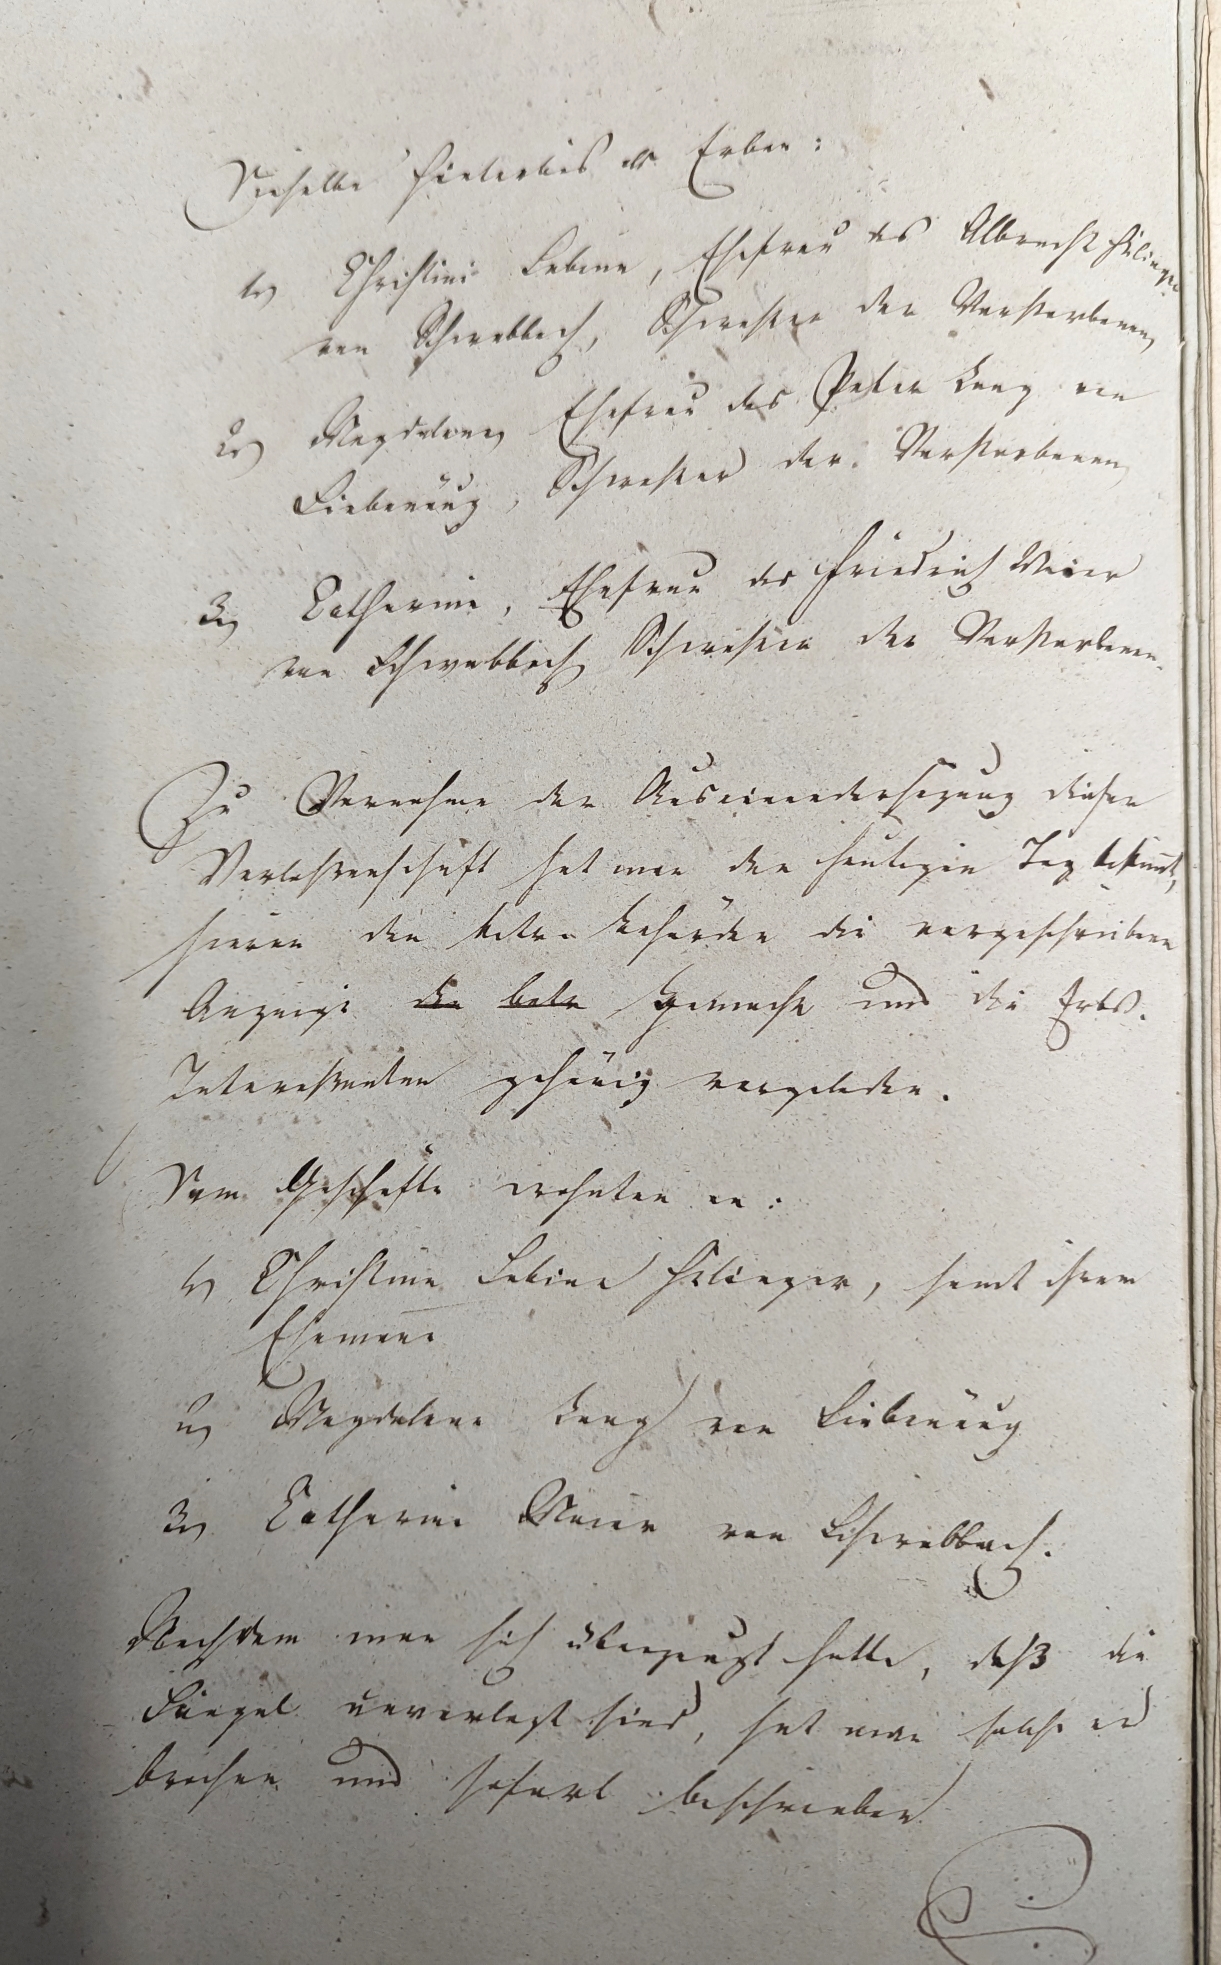 Dieselbe hinterließ als Erben:
1.) Christine Sabine, Ehefrau des Albrecht
von Schwabbach, Schwester der Verstorbenen,
2.) Magdalena, Ehefrau des Peter Lang von
Siebeneich, Schwester der Verstorbenen,
3.) Catharine, Ehefrau des Friedrich Maier
von Schwabbach, Schwester der Verstorbenen.
Zu Vornahme der Auseinandersezung dieser
Verlaßenschaft hat man den heutigen Tag bestimmt,
hievon den betr. Behörden die vorgeschriebene
Anzeige gemacht und die Erbs-
Interessenten gehörig vorgeladen.
Dem Geschäfte wohnten an:
1.) Christine Sabine, samt ihrem
Ehemann
2.) Magdalena Lang von Siebeneich
3.) Catharine Maier von Schwabbach.
Nachdem man sich überzeugt hatte, daß die
Siegel unverlezt sind, hat man solche er
brochen und sofort beschrieben